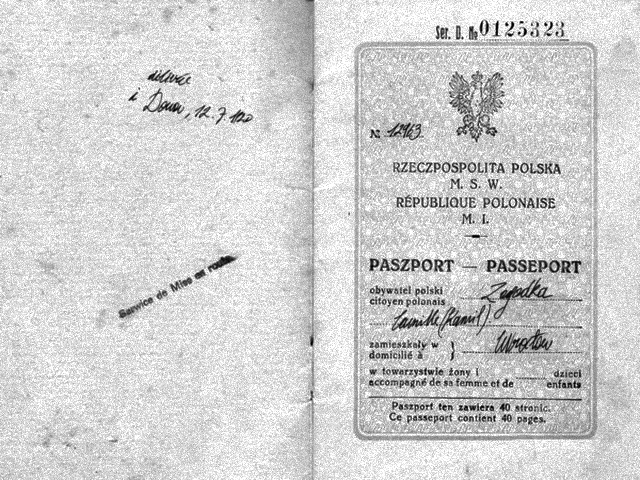 i Dover, 12.7.120
Service de Mise en route
Ser. D. № 0125323
№ 12963
RZECZPOSPOLITA POLSKA
M. S. W.
RÉPUBLIQUE POLONAISE
M. I.
PASZPORT — PASSEPORT
obywatel polski
citoyen polonais
Zagadka
Camille (Kamil)
zamieszkały w
domicilié à
Wrocław
w towarzystwie żony i dzieci
accompagné de sa femme et de enfants
Paszport ten zawiera 40 stronic.
Ce passeport contient 40 pages.